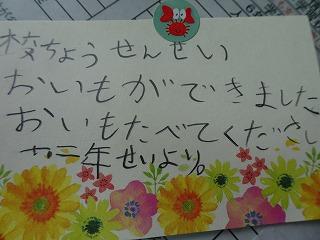 校ちょうせんせい
おいもができました
おいもたべてください
二年せいより。